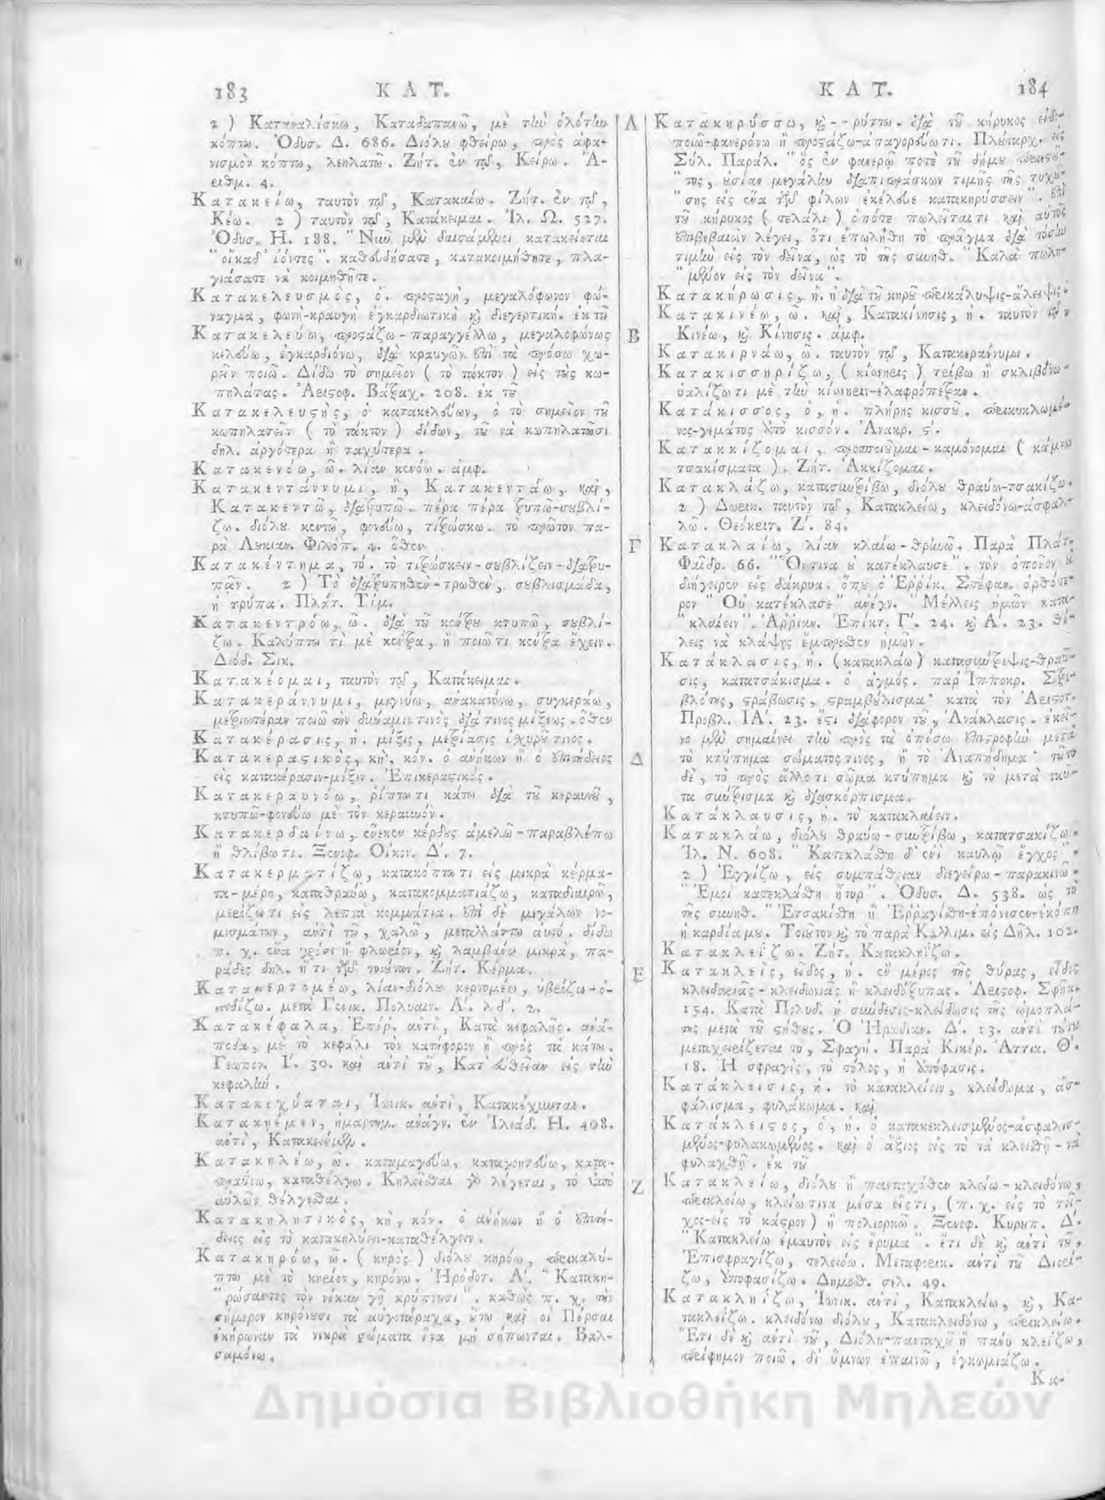 183 ΚΑΤ.
2 ) Καταναλίσκω, Καταδαπανῶ, μὲ τὴν ὁλότην
κόπτω. Ὀδυσ. Δ. 686. Διόλου φθείρω, πρὸς ἀφα-
νισμὸν κόπτω, λεηλατῶ. Ζήτ. ἐν τῷ, Κείρω. Ἀ-
ριθμ. 4.
Κατακείω, ταυτὸν τῷ, Κατακαίω. Ζήτ. ἐν τῷ,
Κέω. 2 ) ταυτὸν τῷ, Κατάκειμαι. Ἰλ. Ω. 527.
Ὀδυσ. Η. 188. "Νῦν μὲν δαισάμενοι κατακείεται
"οἴκαδ' ἰόντες". καθευδήσατε, κατακοιμήθητε, πλα-
γιάσατε νὰ κοιμηθῆτε.
Κατακελευσμὸς, ὁ. προσαγὴ, μεγαλόφωνον φώ-
ναγμα, φωνὴ-κραυγὴ ἐγκαρδιωτικὴ καὶ διεγερτική. ἐκ τοῦ
Κατακελεύω, προστάζω-παραγγέλλω, μεγαλοφώνως
κελεύω, ἐγκαρδιόνω, διὰ κραυγῶν ἐπὶ τὰ πρόσω χω-
ρεῖν ποιῶ. Δίδω τὸ σημεῖον ( τὸ τάκτον ) εἰς τοὺς κω-
πηλάτας. Ἀριστοφ. Βάτραχ. 208. ἐκ τοῦ
Κατακελευστὴς, ὁ κατακελεύων, ὁ τὸ σημεῖον τοῦ
κωπηλατεῖν ( τὸ τάκτον ) δίδων, τοῦ νὰ κωπηλατῶσι
δηλ. ἀργότερα ἢ ταχύτερα.
Κατακενόω, ῶ. λίαν κενόω. ἀμφ.
Κατακεντάννυμι, ἢ, Κατακεντάω, καὶ,
Κατακεντῶ, διατρυπῶ. πέρα πέρα τρυπῶ-σουβλί-
ζω. διόλου κεντῶ, φονεύω, τιτρώσκω. τὸ πρῶτον πα-
ρὰ Λουκιαν. Φιλόπ. 4. ὅθεν
Κατακέντημα, τό. τὸ τιτρώσκειν-σουβλίζειν-διατρυ-
πᾶν. 2 ) Τὸ διατρυπηθὲν-τρωθὲν, σουβλισμάδα,
ἡ τρύπα. Πλάτ. Τίμ.
Κατακεντρόω, ῶ. διὰ τοῦ κέντρου κτυπῶ, σουβλί-
ζω. Καλύπτω τὶ μὲ κέντρα, ἢ ποιῶ τι κέντρα ἔχειν.
Διόδ. Σικ.
Κατακέομαι, ταυτὸν τῷ, Κατάκειμαι.
Κατακεράννυμι, μιγνύω, ἀνακατόνω, συγκεράω,
μετριωτέραν ποιῶ τὴν δύναμιν τινὸς διὰ τινος μίξεως. ὅθεν
Κατακέρασις, ἡ. μίξις, μετρίασις ἰχυροῦ τινος.
Κατακεραστικὸς, κὴ, κόν. ὁ ἀνήκων ἢ ὁ ἐπιτήδειος
εἰς κατακέρασιν-μίξιν. Ἐπικεραστικός.
Κατακεραυνόω, ρίπτω τι κάτω διὰ τοῦ κεραυνοῦ,
κτυπῶ-φονεύω μὲ τὸν κεραυνόν.
Κατακερδαίνω, ἕνεκεν κέρδους ἀμελῶ-παραβλέπω
ἢ θλίβω τι. Ξενοφ. Οἰκον. Δ'. 7.
Κατακερματίζω, κατακόπτω τι εἰς μικρὰ κέρμα-
τα-μέρη, καταθραύω, κατακομματιάζω, καταδιαιρῶ,
μερίζω τι εἰς λεπτὰ κομμάτια. ἐπὶ δὲ μεγάλων νο-
μισμάτων, ἀντὶ τοῦ, χαλῶ, μεταλλάττω αὐτό. δίδω
π. χ. ἕνα γρόσι ἢ φλωρίον, καὶ λαμβάνω μικρὰ, πα-
ράδες δηλ. ἤ τι τῶν τοιούτων. Ζήτ. Κέρμα.
Κατακερτομέω, λίαν-διόλου κερτομέω, ὑβρίζω-ὀ-
νειδίζω. μετὰ Γενικ. Πολυαιν. Α'. λδ'. 2.
Κατακέφαλα, Ἐπίρ. ἀντὶ, Κατὰ κεφαλῆς. ἀνά-
ποδα, μὲ τὸ κεφάλι τὸν κατήφορον ἢ πρὸς τὰ κάτω.
Γεωπον. Ι'. 30. καὶ ἀντὶ τοῦ, Κατ' εὐθεῖαν εἰς τὴν
κεφαλήν.
Κατακεχύαται, Ἰωνικ. ἀντὶ, Κατακέχυνται.
Κατακήεμεν, ἡμαρτημ. ἀνάγν. ἐν Ἰλιάδ. Η. 408.
ἀντὶ, Κατακειέμεν.
Κατακηλέω, ῶ. καταμαγεύω, καταγοητεύω, κατα-
πραΰνω, καταθέλγω. Κηλεῖσθαι γὰρ λέγεται, τὸ ὑπὸ
αὐλῶν θέλγεσθαι.
Κατακηλητικὸς, κὴ, κόν. ὁ ἀνήκων ἢ ὁ ἐπιτή-
δειος εἰς τὸ κατακηλεῖν-καταθέλγειν.
Κατακηρόω, ῶ. ( κηρὸς ) διόλου κηρόω, περικαλύ-
πτω μὲ τὸ κηρίον, κηρόνω. Ἡρόδοτ. Α'. "Κατακη-
"ρώσαντες τὸν νέκυν γῇ κρύπτουσι". καθὼς π. χ. τὴν
σήμερον κηρόνουσι τὰ αὐγοτάραχα, οὕτω καὶ οἱ Πέρσαι
ἐκήρωναν τὰ νεκρὰ σώματα ἵνα μὴ σήπωνται. Βαλ-
σαμόνω.
Α
Β
Γ
Δ
Ε
Ζ
ΚΑΤ. 184
Κατακηρύσσω, καὶ--ρύττω. διὰ τοῦ κήρυκος εἰδο-
ποιῶ-φανερόνω ἢ προστάζω-ἀπαγορεύω τι. Πλούταρχ. εἰς
Σύλ. Παράλ. "ὃς ἐν φανερῷ ποτὲ τοῦ δήμου περιεστῶ-
"τος, οὐσίαν μεγάλην διαπιπράσκων τιμῆς τῆς τυχού-
"σης εἰς ἕνα τῶν φίλων ἐκέλευε κατακηρύσσειν". ἐπὶ
τοῦ κήρυκος ( τελάλι ) ὁπότε πωλεῖταί τι καὶ αὐτὸς
ἐπιβεβαιῶν λέγει, ὅτι ἐπωλήθη τὸ πρᾶγμα διὰ τόσην
τιμὴν εἰς τὸν δεῖνα, ὡς τὸ τῆς συνηθ. "Καλὰ πωλη-
"μένον εἰς τὸν δεῖνα".
Κατακήρωσις, ἡ. ἡ διὰ τοῦ κηροῦ περικάλυψις-ἄλειψις.
Κατακινέω, ῶ. καὶ, Κατακίνησις, ἡ. ταυτὸν τῷ
Κινέω, καὶ Κίνησις. ἀμφ.
Κατακιρνάω, ῶ. ταυτὸν τῷ, Κατακεράννυμι.
Κατακισσηρίζω, ( κίσσηρις ) τρίβω ἢ σκλιβόνω-
ὑαλίζω τι μὲ τὴν κίσσηριν-ἐλαφρόπετραν.
Κατάκισσος, ὁ, ἡ. πλήρης κισσοῦ. περικυκλωμέ-
νος-γεμάτος ἀπὸ κισσόν. Ἀνακρ. ϛ'.
Κατακκίζομαι, προσποιοῦμαι-καμόνομαι ( κάμνω
τσακίσματα ). Ζήτ. Ἀκκίζομαι.
Κατακλάζω, κατασυντρίβω, διόλου θραύω-τσακίζω.
2 ) Δωρικ. ταυτὸν τῷ, Κατακλείω, κλειδόνω-ἀσφα-
λῶ. Θεόκριτ. Ζ'. 84.
Κατακλαίω, λίαν κλαίω-θρηνῶ. Παρὰ Πλάτ.
Φαίδρ. 66. "Ὅντινα οὐ κατέκλαυσε". τὸν ὁποῖον οὐ
διήγειρεν εἰς δάκρυα. ὅπου ὁ Ἐρρίκ. Στέφαν. ὀρθότε-
ρον "Οὐ κατέκλασε" ἀνέγν. "Μέλλεις ἡμῶν κατα-
"κλαίειν". Ἀρριαν. Ἐπίκτ. Γ'. 24. καὶ Α'. 23. θέ-
λεις νὰ κλάψῃς ἔμπροσθεν ἡμῶν.
Κατάκλασις, ἡ. (κατακλάω) κατασύντριψις-θραῦ-
σις, κατατσάκισμα. ὁ ἀγμός. παρ' Ἱπποκρ. Στρε-
βλότης, στράβωσις, στραμβούλισμα. κατὰ τὸν Ἀριστοτ.
Προβλ. ΙΑ'. 23. ἔστι διάφορον τοῦ, Ἀνάκλασις. ἐκεῖ-
νο μὲν σημαίνει τὴν πρὸς τὰ ὀπίσω ἐπιστροφὴν μετὰ
τὸ κτύπημα σώματος τινος, ἢ τὸ Ἀναπήδημα· τοῦτο
δὲ, τὸ πρὸς ἄλλο τι σῶμα κτύπημα καὶ τὸ μετὰ ταῦ-
τα σύντριμμα καὶ διασκόρπισμα.
Κατάκλαυσις, ἡ. τὸ κατακλαίειν.
Κατακλάω, διόλου θραύω-συντρίβω, κατατσακίζω.
Ἰλ. Ν. 608. "Κατεκλάσθη δ' ἐνὶ καυλῷ ἔγχος".
2 ) Ἐγγίζω, εἰς συμπάθειαν διεγείρω-παρακινῶ.
"Ἐμοὶ κατεκλάσθη ἦτορ". Ὀδυσ. Δ. 538. ὡς τὸ
τῆς συνηθ. "Ἐτσακίσθη ἢ Ἐρραγίσθη-ἐπόνεσεν-ἐκόπη
ἡ καρδία μου. Τοιοῦτον καὶ τὸ παρὰ Καλλιμ. εἰς Δῆλ. 102.
Κατακλεΐζω. Ζήτ. Κατακληΐζω.
Κατακλείς, εῖδος, ἡ. ἓν μέρος τῆς θύρας, εἶδος
κλειδαριᾶς-κλειδωνιᾶς ἢ κλειδότρυπας. Ἀριστοφ. Σφῆκ.
154. Κατὰ Πολυδ. ἡ σύνδεσις-κλείδωσις τῆς ὠμοπλά-
της μετὰ τοῦ στήθους. Ὁ Ἡρωδιαν. Δ'. 13. ἀντὶ τούτου
μεταχειρίζεται τὸ, Σφαγή. Παρὰ Κικέρ. Ἀττικ. Θ'.
18. Ἡ σφραγὶς, τὸ τέλος, ἡ ἀπόφασις.
Κατάκλεισις, ἡ. τὸ κατακλείειν, κλείδωμα, ἀσ-
φάλισμα, φυλάκωμα. καὶ
Κατάκλειστος, ὁ, ἡ. ὁ κατακεκλεισμένος-ἀσφαλισ-
μένος-φυλακωμένος. καὶ ὁ ἄξιος εἰς τὸ νὰ κλεισθῇ-νὰ
φυλαχθῇ. ἐκ τοῦ
Κατακλείω, διόλου ἢ πανταχόθεν κλείω-κλειδόνω,
περικλείω, κλείω τινα μέσα εἴς τι, (π. χ. εἰς τὸ τεῖ-
χος-εἰς τὸ κάστρον) ἢ πολιορκῶ. Ξενοφ. Κυρουπ. Δ'.
"Κατακλείω ἐμαυτὸν εἰς ἔρυμα". ἔτι δὲ καὶ ἀντὶ τοῦ,
Ἐπισφραγίζω, τελειόω. Μεταφορικ. ἀντὶ τοῦ Διορί-
ζω, ἀποφασίζω. Δημοσθ. σελ. 49.
Κατακληΐζω, Ἰωνικ. ἀντὶ, Κατακλείω, καὶ, Κα-
τακλεΐζω. κλειδόνω διόλου, Κατακλειδόνω, περικλείω.
Ἔτι δὲ καὶ ἀντὶ τοῦ, Διόλου-πανταχοῦ ἢ πάνυ κλεΐζω,
περίφημον ποιῶ, δι' ὕμνων ἐπαινῶ, ἐγκωμιάζω.
Κα-
Δημόσια Βιβλιοθήκη Μηλεών